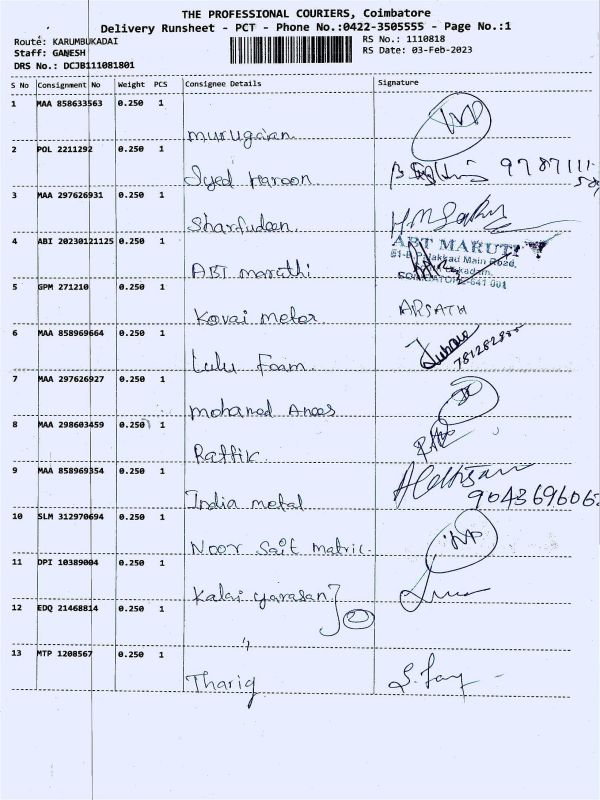 THE PROFESSIONAL COURIERS, Coimbatore
Delivery Runsheet - PCT - Phone No.:0422-3505555 - Page No.:1
Route: KARUMBUKADAI
Staff: GANESH
DRS No.: DCJB111081801
RS No.: 1110818
RS Date: 03-Feb-2023
S No Consignment No Weight PCS Consignee Details Signature
1 MAA 858633563 0.250 1
murugaian
2 POL 2211292 0.250 1
Syed Haroon 9787111
3 MAA 297626931 0.250 1
Sharfudeen
4 ABI 20230121125 0.250 1
ABT maruthi
ABT MARUTI
Palakkad Main Road,
641 001
5 GPM 271210 0.250 1
Kovai metor ARSATH
6 MAA 858969664 0.250 1
Lulu Foam
7 MAA 297626927 0.250 1
mohamed Anees
8 MAA 298603459 0.250 1
Raffik
9 MAA 858969354 0.250 1
India metal
904369606
10 SLM 312970694 0.250 1
Noor Sait Matric.
11 DPI 10389004 0.250 1
Kalai yarasan
12 EDQ 21468814 0.250 1
"
13 MTP 1208567 0.250 1
Thariq